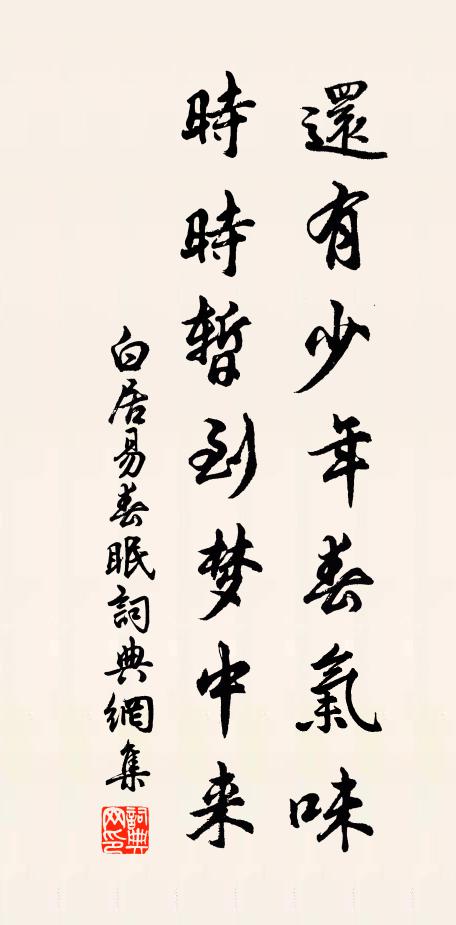 還有少年春氣味
時時暫到梦中来
白居易春眠詞典網集
詞典网印